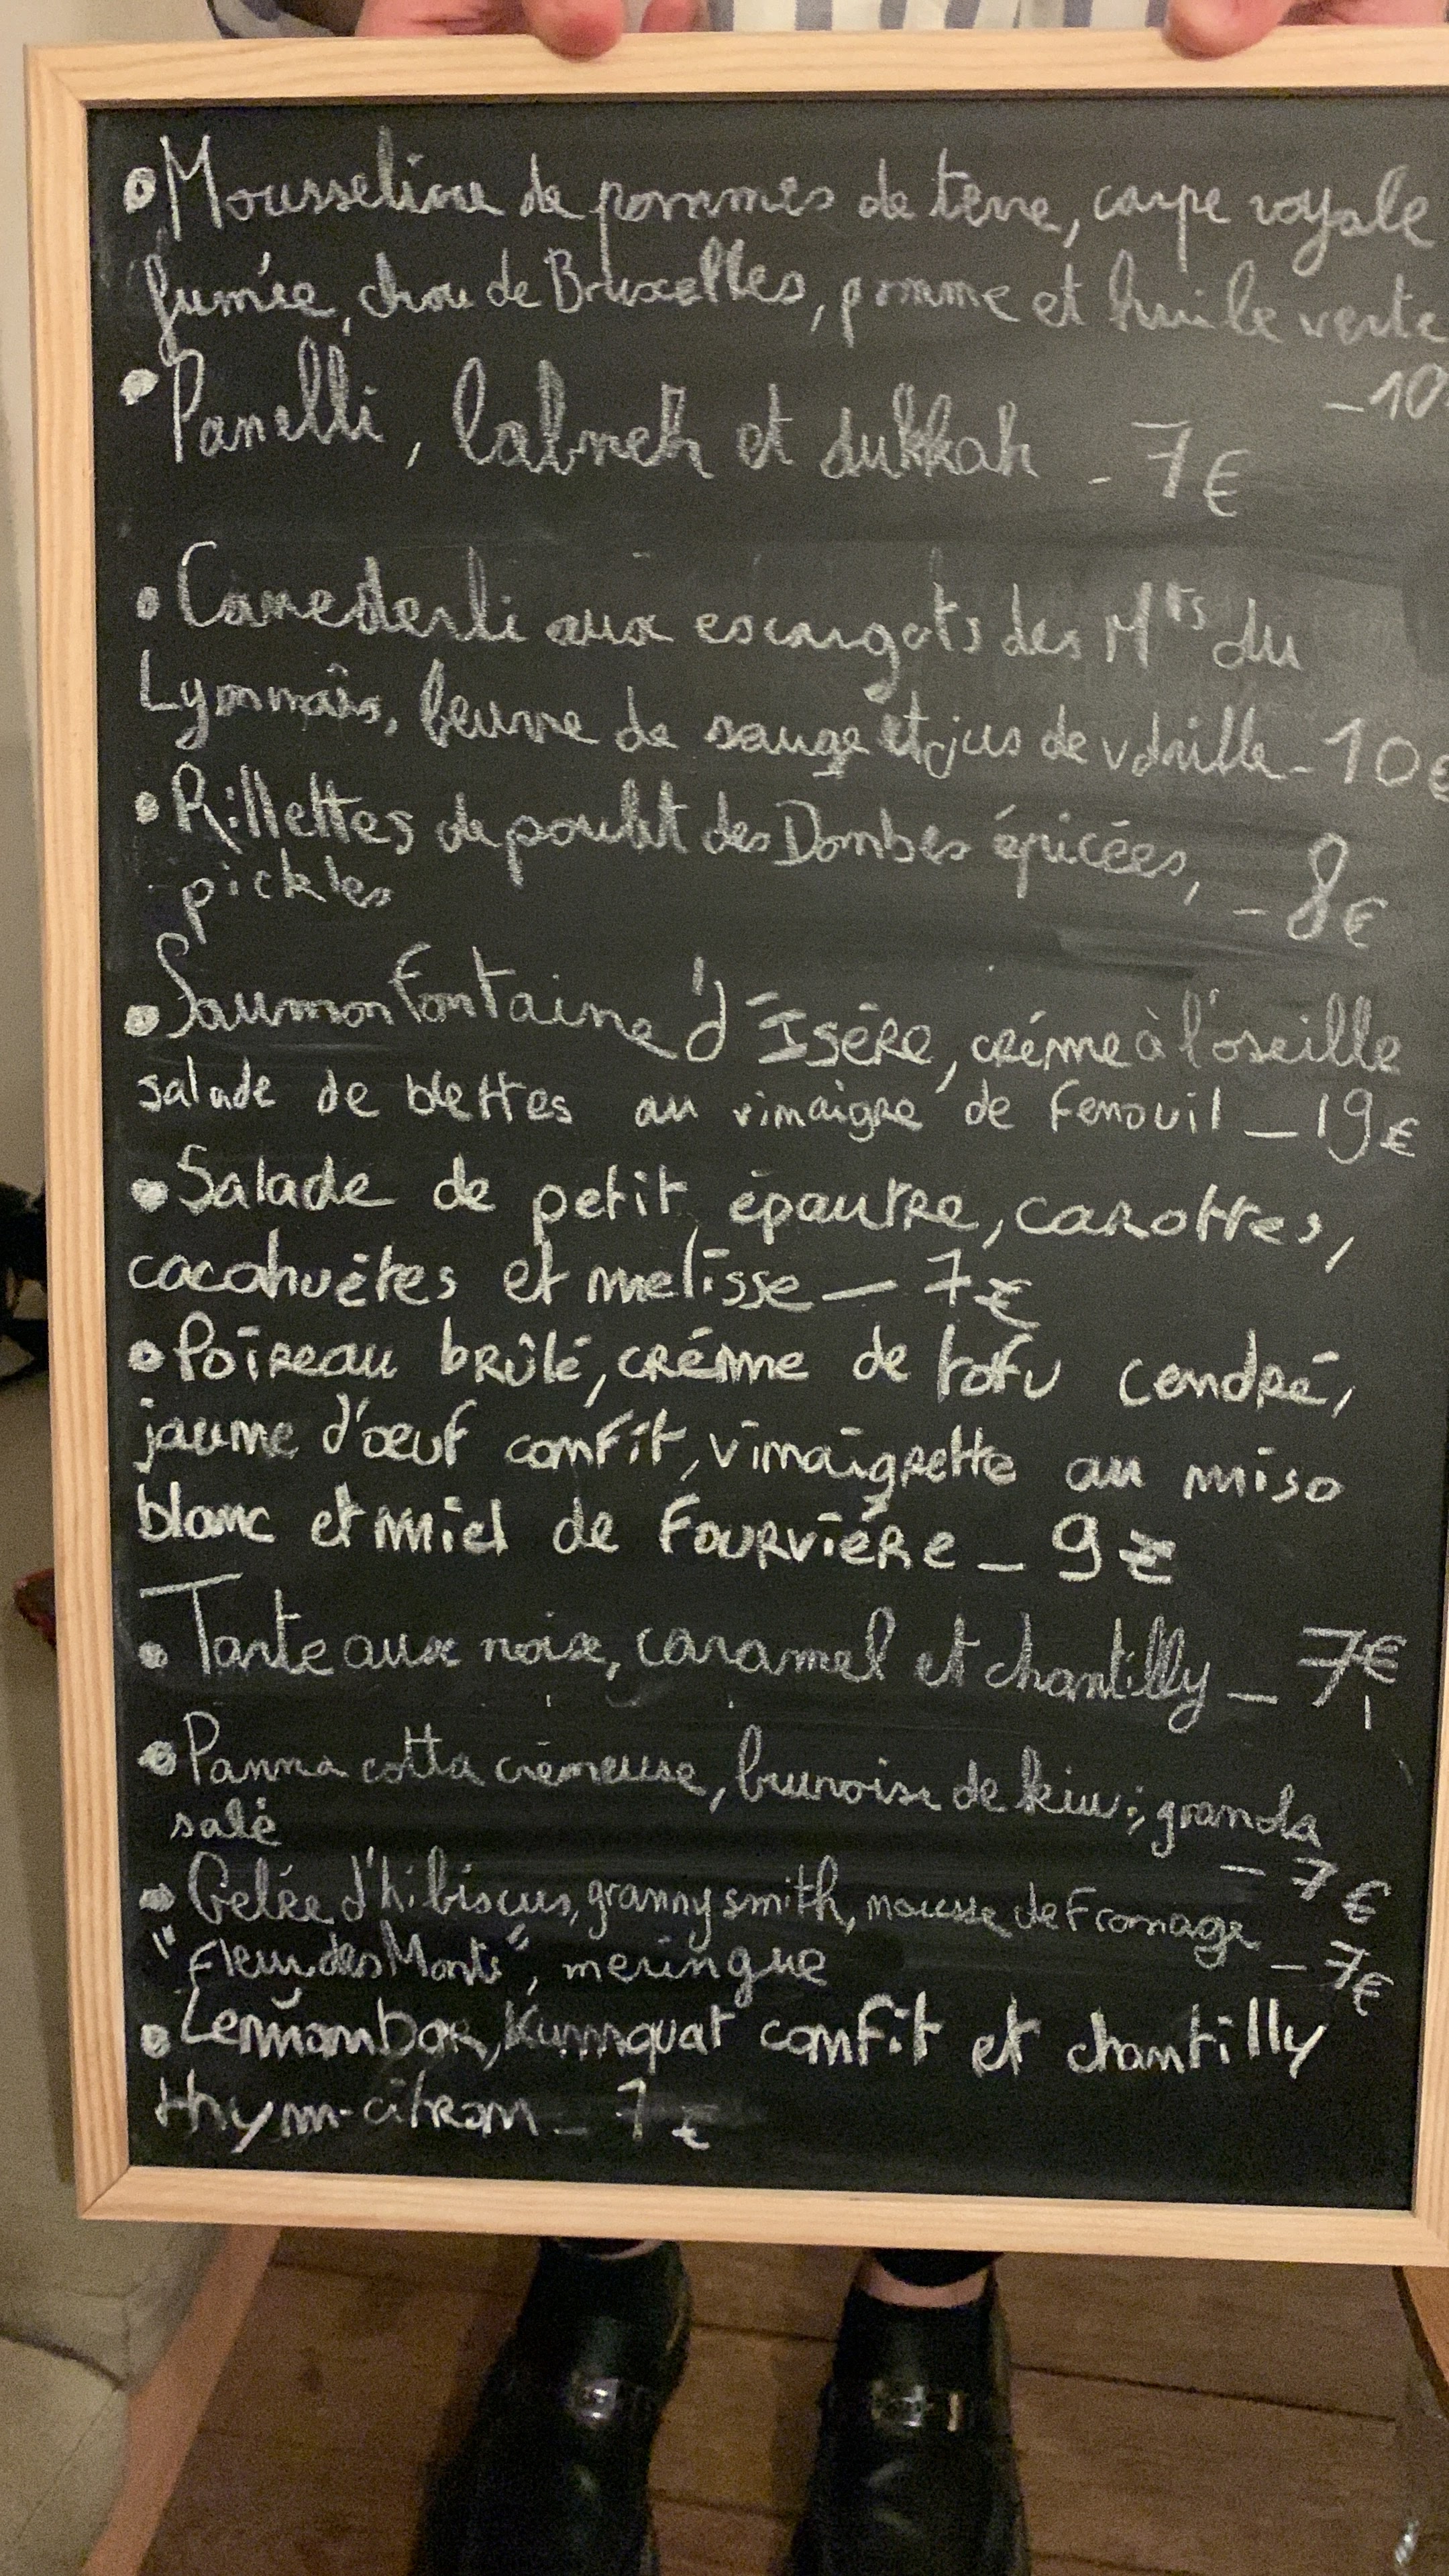 • Mousseline de pommes de terre, carpe royale
fumée, chou de Bruxelles, pomme et huile verte
- 10
• Panelli, labneh et dukkah - 7€
• Canederli aux escargots des Mts du
Lyonnais, beurre de sauge et jus de volaille - 10€
• Rillettes de poulet des Dombes épicées, - 8€
pickles
• Saumon Fontaine d'Isère, crème à l'oseille
salade de blettes au vinaigre de fenouil - 19€
• Salade de petit épautre, carottes,
cacahuètes et mélisse - 7€
• Poireau brûlé, crème de tofu cendré,
jaune d'œuf confit, vinaigrette au miso
blanc et miel de Fourvière - 9€
• Tarte aux noix, caramel et chantilly - 7€
• Panna cotta crémeuse, brunoise de kiwi, granola
salé - 7€
• Gelée d'hibiscus, granny smith, mousse de fromage
"Fleur des Monts", meringue - 7€
• Lemon bar, Kumquat confit et chantilly
thym-citron - 7€